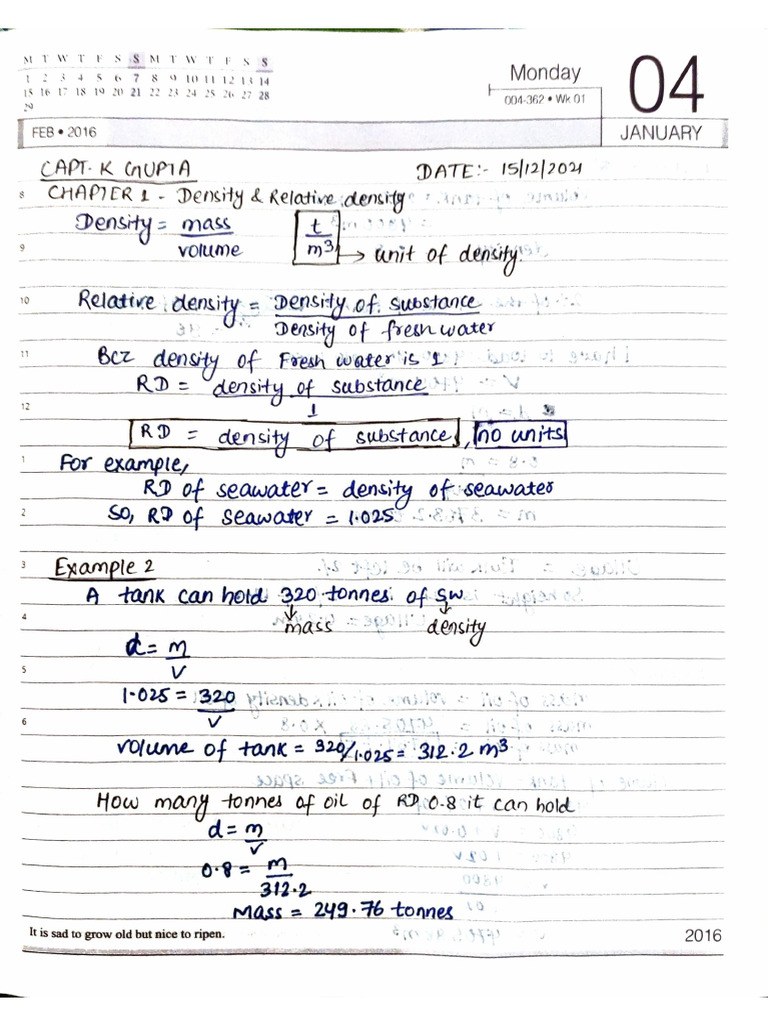 M T W T F S S M T W T F S S
1 2 3 4 5 6 7 8 9 10 11 12 13 14
15 16 17 18 19 20 21 22 23 24 25 26 27 28
29
FEB • 2016
Monday
004-362 • Wk 01
04
JANUARY
CAPT. K GUPTA DATE:- 15/12/2021
8 CHAPTER 1 - Density & Relative density
Density = mass
volume
t
m³ → unit of density.
9
10 Relative density = Density of substance
Density of fresh water
11 Bcz density of Fresh water is 1
RD = density of substance
1
12
RD = density of substance, no units
1 For example,
RD of seawater = density of seawater
2 So, RD of seawater = 1.025
3 Example 2
A tank can hold 320 tonnes of SW
4 mass density
d = m
V
5
1.025 = 320
V
6
volume of tank = 320/1.025 = 312.2 m³
How many tonnes of oil of RD 0.8 it can hold
d = m
V
0.8 = m
312.2
Mass = 249.76 tonnes
It is sad to grow old but nice to ripen.
2016